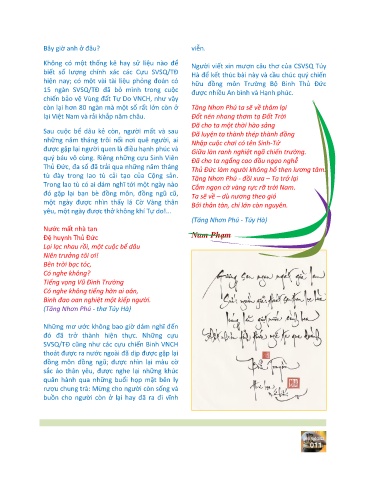 Bây giờ anh ở đâu?
Không có một thống kê hay sử liệu nào để
biết số lượng chính xác các Cựu SVSQ/TĐ
hiện nay; có một vài tài liệu phỏng đoán có
15 ngàn SVSQ/TĐ đã bỏ mình trong cuộc
chiến bảo vệ Vùng đất Tự Do VNCH, như vậy
còn lại hơn 80 ngàn mà một số rất lớn còn ở
lại Việt Nam và rải khắp năm châu.
Sau cuộc bể dâu kẻ còn, người mất và sau
những năm tháng trôi nổi nơi quê người, ai
được gặp lại người quen là điều hạnh phúc và
quý báu vô cùng. Riêng những cựu Sinh Viên
Thủ Đức, đa số đã trải qua những năm tháng
tù đày trong lao tù cải tạo của Cộng sản.
Trong lao tù có ai dám nghĩ tới một ngày nào
đó gặp lại bạn bè đồng môn, đồng ngũ cũ,
một ngày được nhìn thấy lá Cờ Vàng thân
yêu, một ngày được thở không khí Tự do!...
Nước mất nhà tan
Đệ huynh Thủ Đức
Lạc lạc nhau rồi, một cuộc bể dâu
Niên trưởng tôi ơi!
Bên trời bạc tóc,
Có nghe không?
Tiếng vọng Vũ Đình Trường
Có nghe không tiếng hờn ai oán,
Binh đao oan nghiệt một kiếp người.
(Tăng Nhơn Phú - thơ Túy Hà)
Những mơ ước không bao giờ dám nghĩ đến
đó đã trở thành hiện thực. Những cựu
SVSQ/TĐ cũng như các cựu chiến Binh VNCH
thoát được ra nước ngoài đã dịp được gặp lại
đồng môn đồng ngũ; được nhìn lại màu cờ
sắc áo thân yêu, được nghe lại những khúc
quân hành qua những buổi họp mặt bên ly
rượu chung trà: Mừng cho người còn sống và
buồn cho người còn ở lại hay đã ra đi vĩnh
viễn.
Người viết xin mượn câu thơ của CSVSQ Túy
Hà để kết thúc bài này và cầu chúc quý chiến
hữu đồng môn Trường Bộ Binh Thủ Đức
được nhiều An bình và Hạnh phúc.
Tăng Nhơn Phú ta sẽ về thăm lại
Đất nén nhang thơm tạ Đất Trời
Đã cho ta một thời hào sảng
Đã luyện ta thành thép thành đồng
Nhập cuộc chơi có tên Sinh-Tử
Giữa lằn ranh nghiệt ngã chiến trường.
Đã cho ta ngẩng cao đầu ngạo nghễ
Thủ Đức làm người không hổ thẹn lương tâm.
Tăng Nhơn Phú - đồi xưa – Ta trở lại
Cắm ngọn cờ vàng rực rỡ trời Nam.
Ta sẽ về – dù nương theo gió
Bởi thân tàn, chí lớn còn nguyên.
(Tăng Nhơn Phú - Túy Hà)
Nam Phạm
013